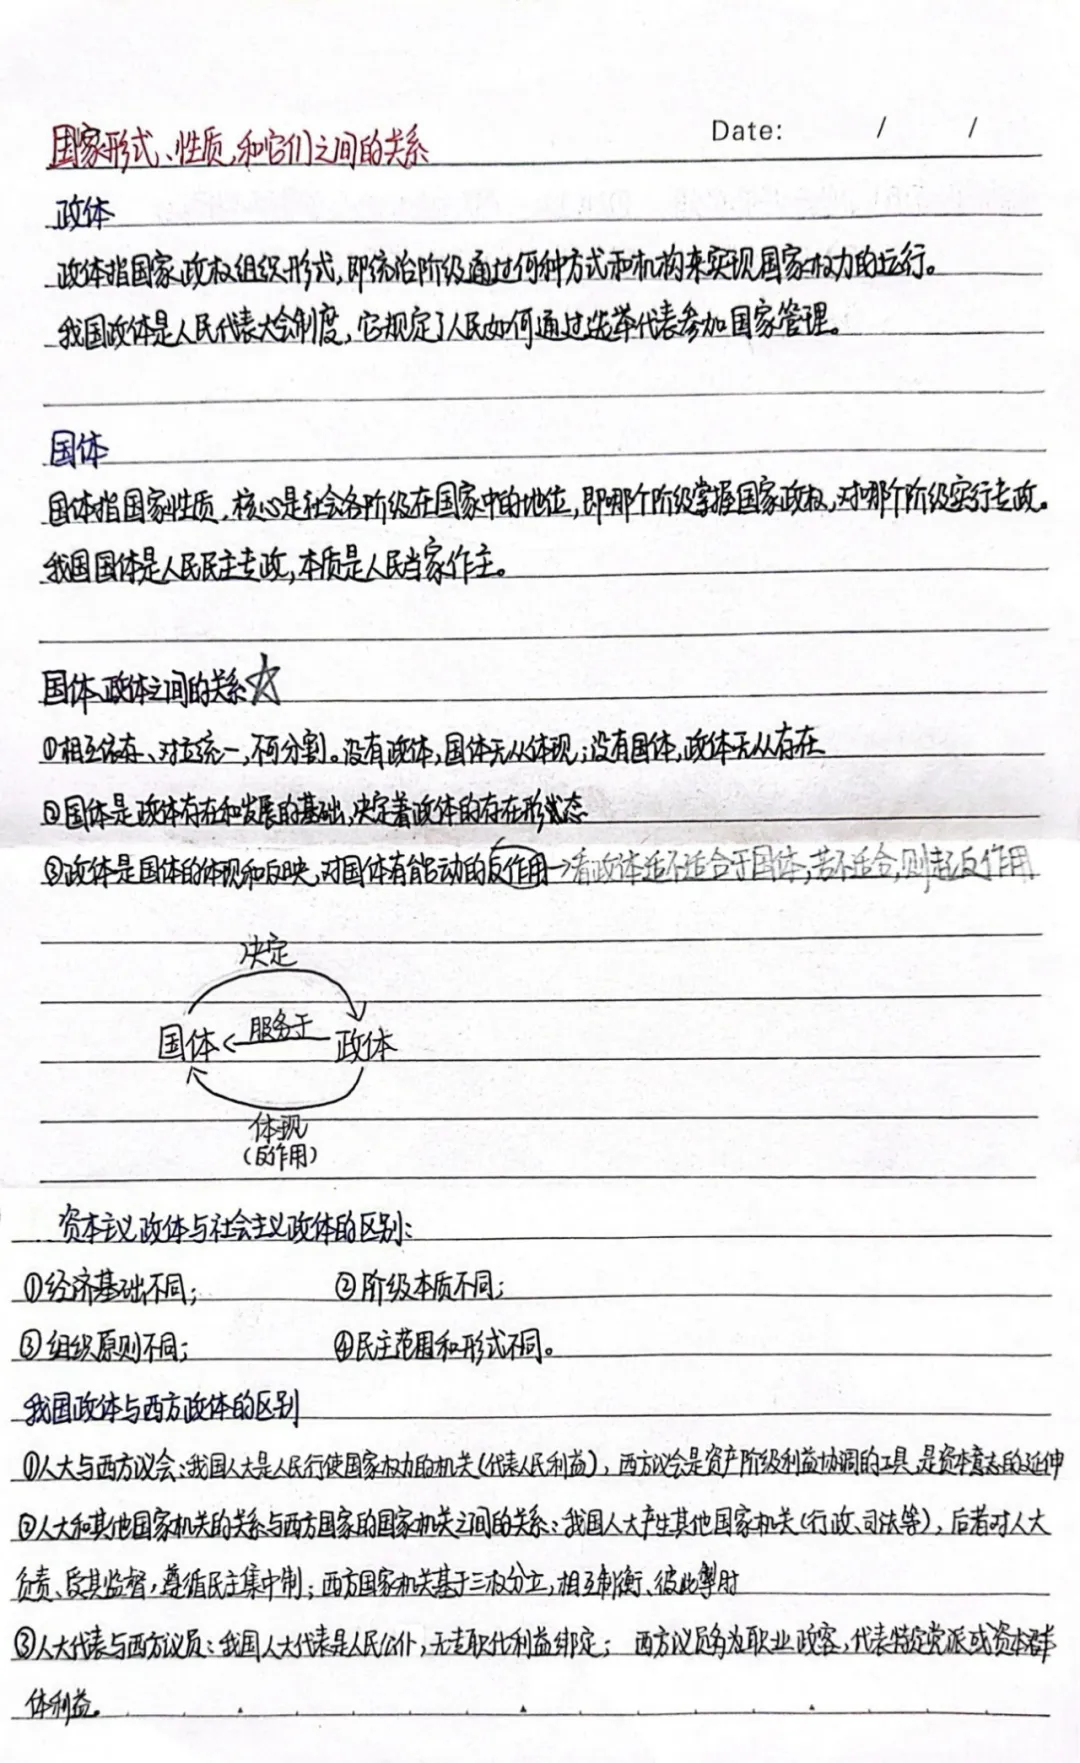 Date: / /
国家形式、性质,和它们之间的关系
政体
政体指国家政权组织形式,即统治阶级通过何种方式和机构来实现国家权力的运行。
我国政体是人民代表大会制度,它规定了人民如何通过选举代表参加国家管理。
国体
国体指国家性质,核心是社会各阶级在国家中的地位,即哪个阶级掌握国家政权,对哪个阶级实行专政。
我国国体是人民民主专政,本质是人民当家作主。
国体、政体之间的关系☆
①相互依存、对立统一,不可分割。没有政体,国体无从体现;没有国体,政体无从存在
②国体是政体存在和发展的基础,决定着政体的存在形式状态
③政体是国体的体现和反映,对国体有能动的反作用→看政体适不适合于国体,若不适合,则起反作用
决定
国体 ← 服务于 政体
体现
(反作用)
资本主义政体与社会主义政体的区别:
①经济基础不同; ②阶级本质不同;
③组织原则不同; ④民主范围和形式不同。
我国政体与西方政体的区别
①人大与西方议会:我国人大是人民行使国家权力的机关(代表人民利益),西方议会是资产阶级利益协调的工具,是资本意志的延伸
②人大和其他国家机关的关系与西方国家的国家机关之间的关系:我国人大产生其他国家机关(行政、司法等),后者对人大
负责、受其监督,遵循民主集中制;西方国家机关基于三权分立,相互制衡、彼此掣肘
③人大代表与西方议员:我国人大代表是人民公仆,无专职化利益绑定; 西方议员多为职业政客,代表特定党派或资本群
体利益。